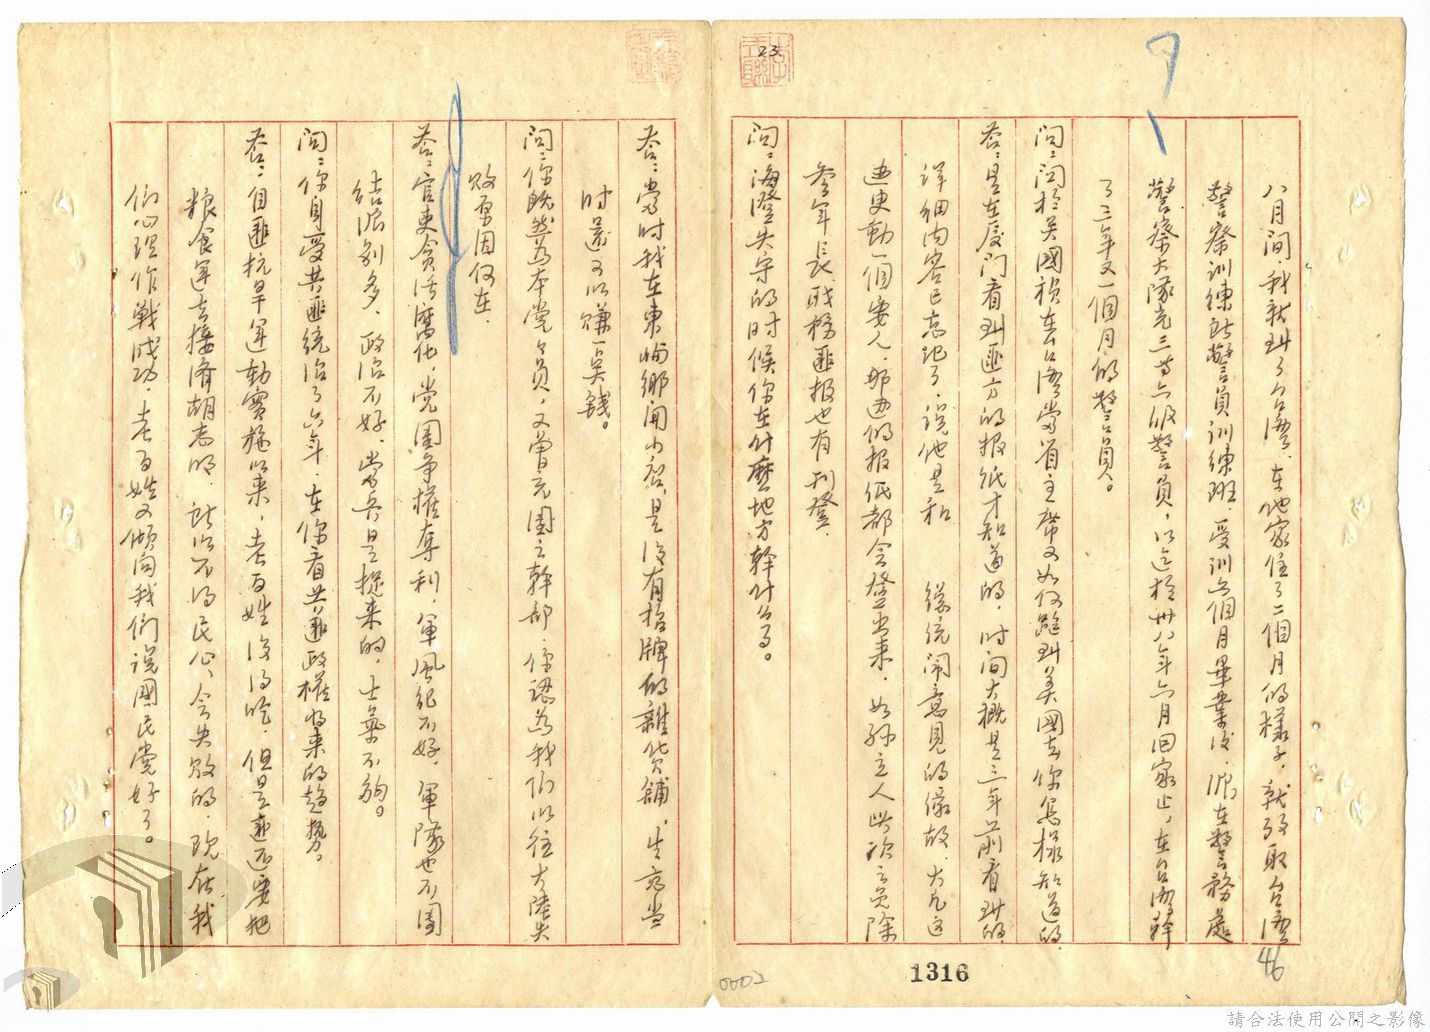 23
八月間,我就到了台灣,在他家住了二個月的樣子,就考取台灣
警察訓練所警員訓練班,受訓六個月畢業後,派在警務處
警察大隊充三等六級警員,以迄於卅八年六月回家止,在台灣幹
了三年又一個月的警員。
問:關於吳國禎在台灣當省主席又如何跑到美國去你怎樣知道的,
答:是在廈門看到匪方的报紙才知道的,时间大概是三年前看到的,
詳細内容已忘記了,說他是和 總統鬧意見的緣故,大凡这
边更動一個要人,那边的报纸都会登出来,如孫立人此次之免除
參军長职務匪报也有刊登。
問:海澄失守的时候你在什麼地方幹什么。
答:當时我在東 鄉開小店,是沒有招牌的雜貨舖,生意当
时還可以賺一點錢。
問:你既然為本党党員,又曾充團之幹部,你認為我们以往大陸失
敗原因何在。
答:官吏貪污腐化,党團争權奪利,軍風紀不好,軍隊也不團
結派别多,政治不好,當兵是捉来的,士氣不夠。
問:你身受共匪統治了六年,在你看共匪政權将来的趋势。
答:自匪抗旱運動實施以来,老百姓沒得吃,但是匪还要把
粮食運去接濟胡志明,所以不得民心,会失敗的,现在我
们心理作戰成功,老百姓又傾向我们說國民党好了。
46
0002
1316
請合法使用公開之影像